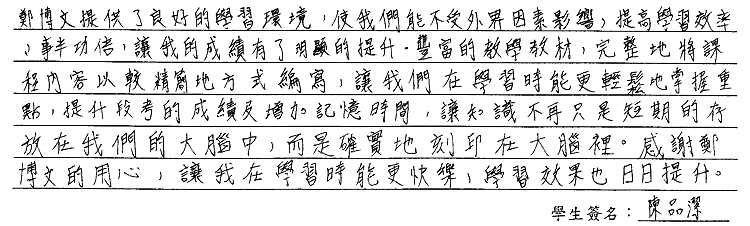 鄭博文提供了良好的學習環境，使我們能不受外界因素影響，提高學習效率
，事半功倍，讓我的成績有了明顯的提升。豐富的教學教材，完整地將課
程內容以較精簡地方式編寫，讓我們在學習時能更輕鬆地掌握重
點，提升段考的成績及增加記憶時間，讓知識不再只是短期的存
放在我們的大腦中，而是確實地刻印在大腦裡。感謝鄭
博文的用心，讓我在學習時能更快樂，學習效果也日日提升。
學生簽名：陳品潔